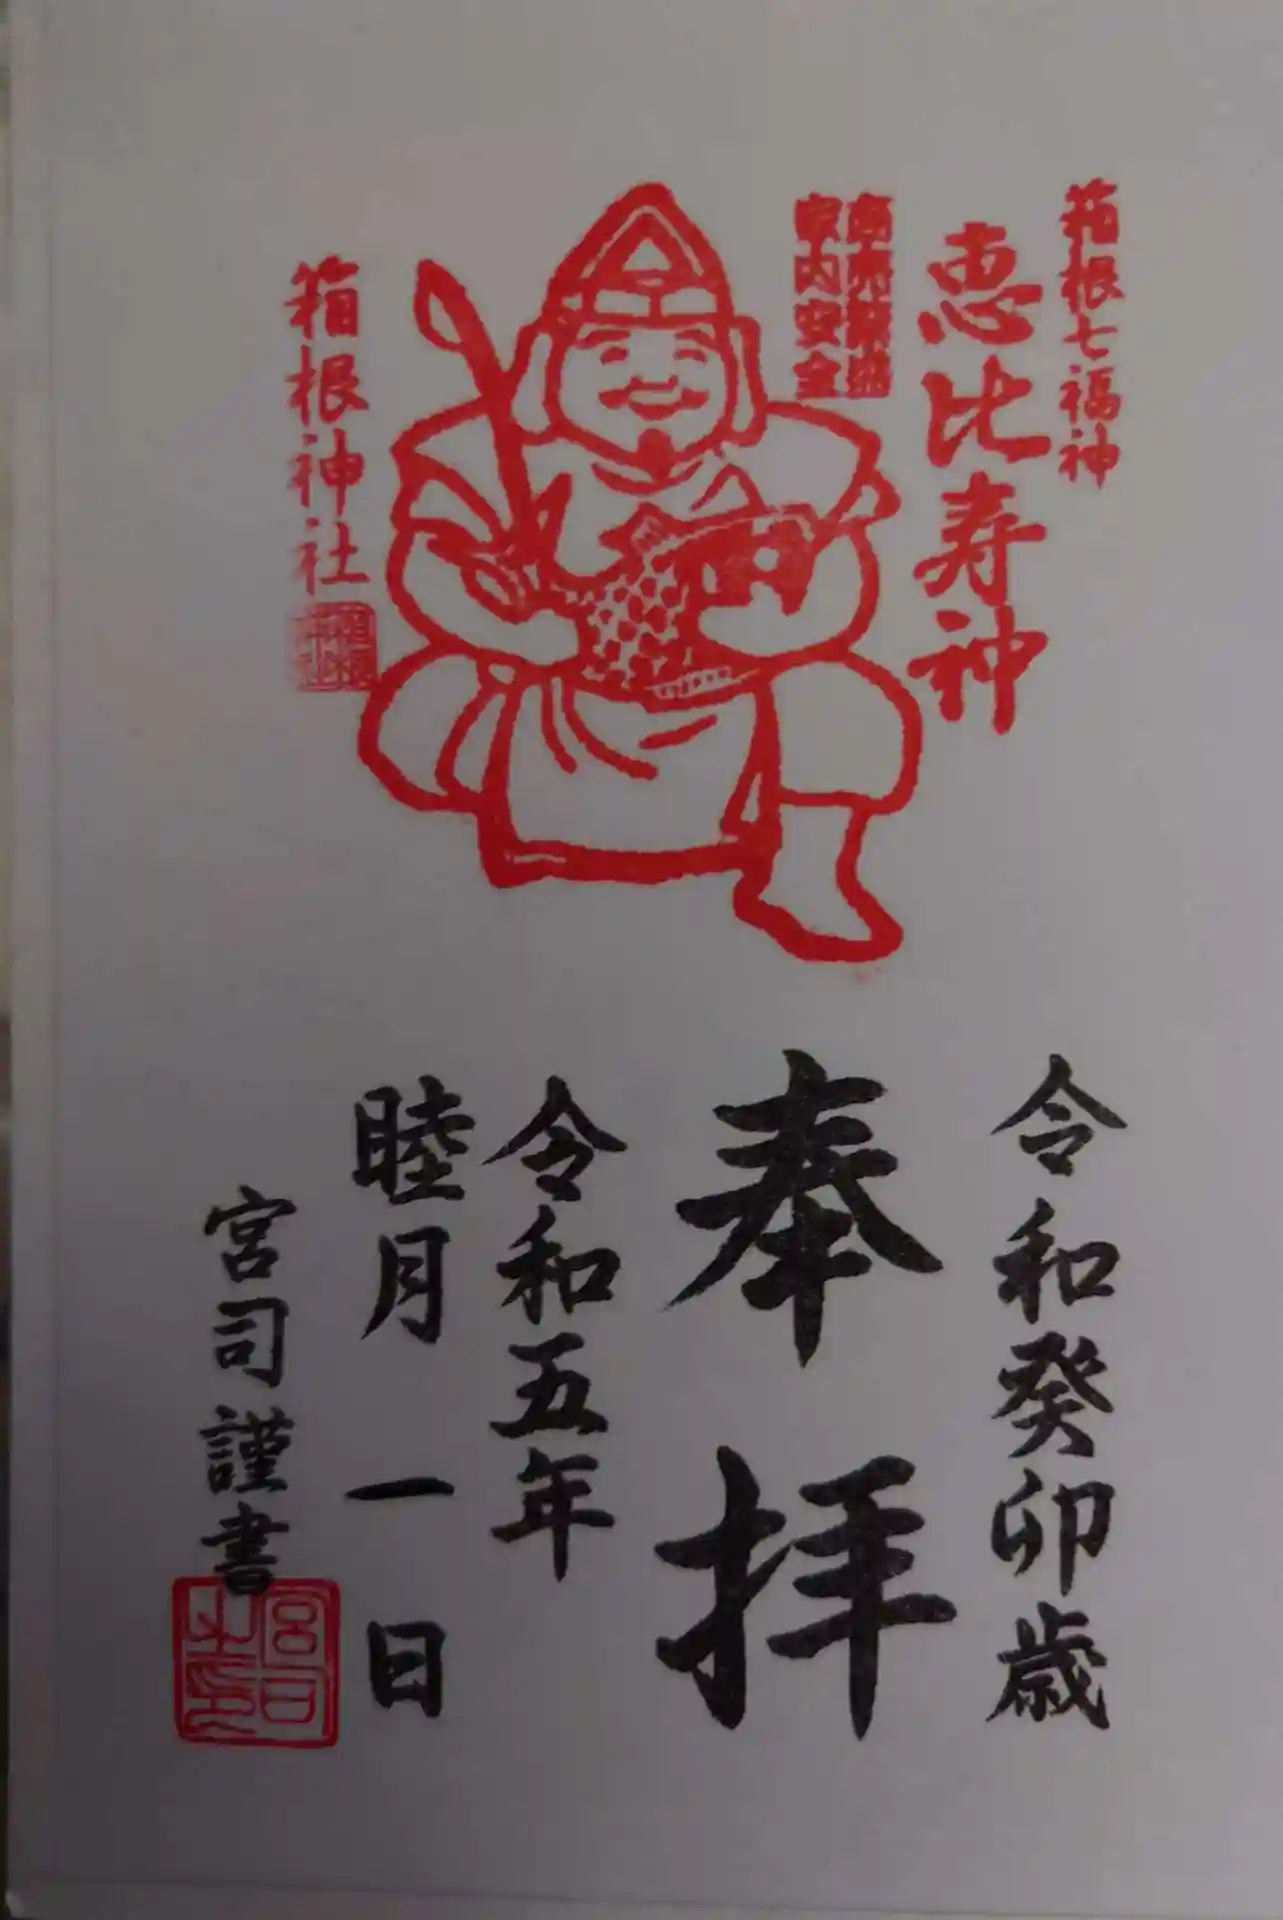 箱根七福神
恵比寿神
商売繁盛
家内安全
箱根神社
箱根
神社
令和癸卯歳
奉拝
令和五年
睦月一日
宮司謹書
宮司
之印